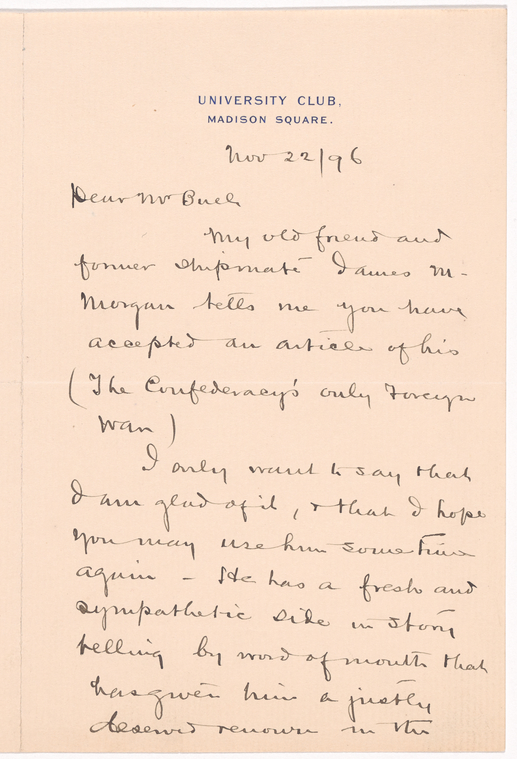 UNIVERSITY CLUB,
MADISON SQUARE.
Nov 22/96
Dear Mr Buel
My old friend and
former shipmate James M-
Morgan tells me you have
accepted an article of his
(The Confederacy's only Foreign
War)
I only want to say that
I am glad of it, & that I hope
you may use him some time
again - He has a fresh and
sympathetic side in story
telling by word of mouth that
has given him a justly
deserved renown in the